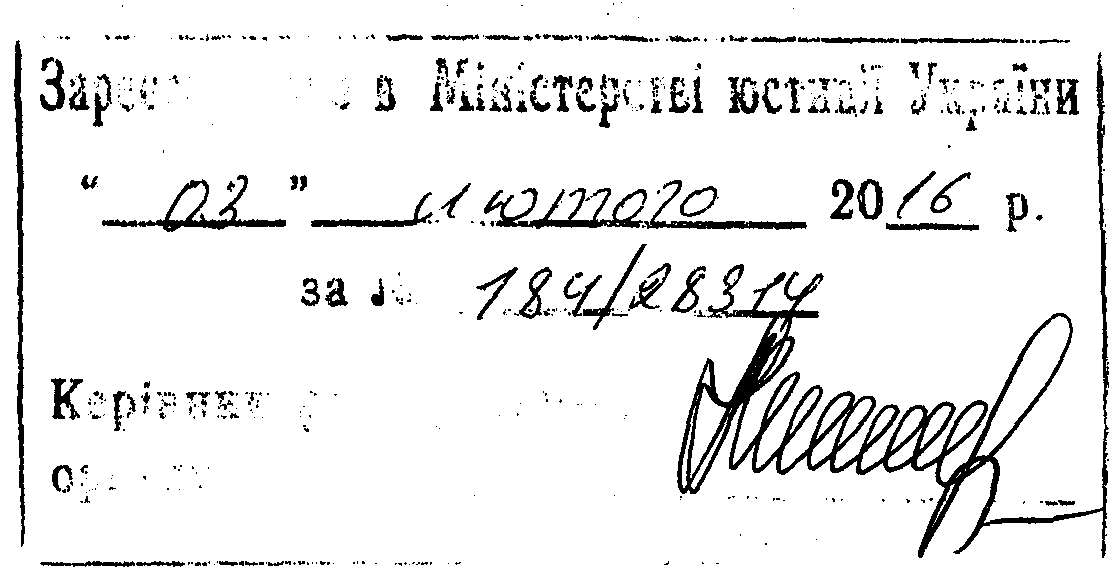 Зареєстровано в Міністерстві юстиції України
“ 03 ” лютого 2016 р.
за № 184/28314
Керівник